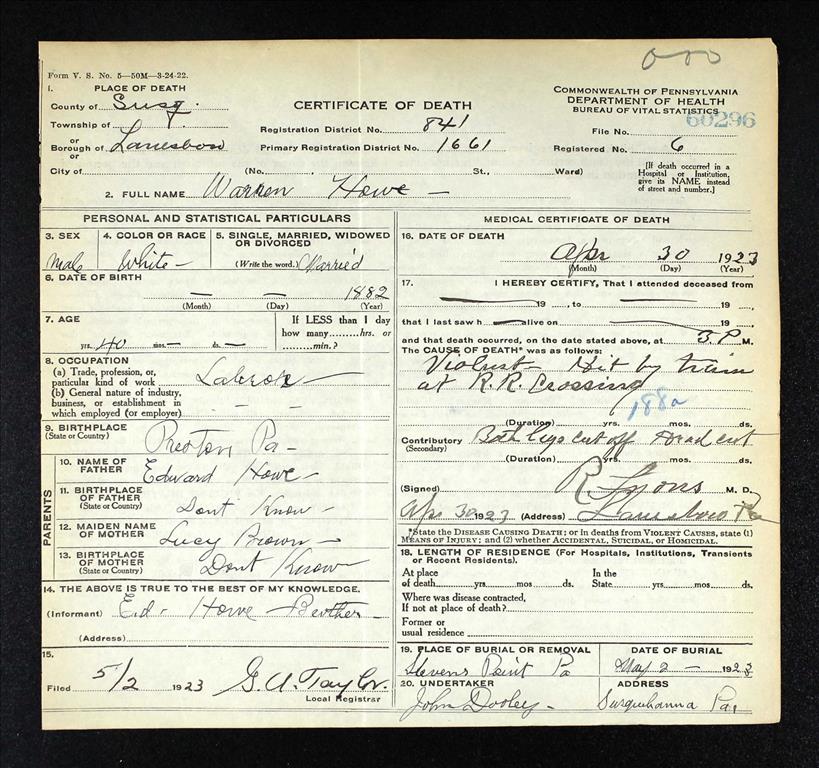 Form V. S. No. 5—50M—3-24-22.
1. PLACE OF DEATH
County of Susq.
Township of
or
Borough of Lanesboro
or
City of
CERTIFICATE OF DEATH
Registration District No. 841
Primary Registration District No. 1661
(No. St., Ward)
COMMONWEALTH OF PENNSYLVANIA
DEPARTMENT OF HEALTH
BUREAU OF VITAL STATISTICS
60296
File No.
Registered No. 6
[If death occurred in a
Hospital or Institution,
give its NAME instead
of street and number.]
2. FULL NAME Warren Howe —
PERSONAL AND STATISTICAL PARTICULARS
3. SEX
Male
4. COLOR OR RACE
White —
5. SINGLE, MARRIED, WIDOWED
OR DIVORCED
(Write the word.) Married
6. DATE OF BIRTH
— — 1882
(Month) (Day) (Year)
7. AGE
yrs. 40 mos. — ds. —
If LESS than 1 day
how many hrs. or
min.?
8. OCCUPATION
(a) Trade, profession, or,
particular kind of work Laborer —
(b) General nature of industry,
business, or establishment in
which employed (or employer) — —
9. BIRTHPLACE
(State or Country) Preston Pa —
PARENTS
10. NAME OF
FATHER Edward Howe —
11. BIRTHPLACE
OF FATHER
(State or Country) Dont Know —
12. MAIDEN NAME
OF MOTHER Lucy Brown —
13. BIRTHPLACE
OF MOTHER
(State or Country) Dont Know
14. THE ABOVE IS TRUE TO THE BEST OF MY KNOWLEDGE.
(Informant) Ed. Howe — Brother
(Address)
15.
Filed 5/2 1923 G. A. Taylor.
Local Registrar
MEDICAL CERTIFICATE OF DEATH
16. DATE OF DEATH
Apr 30 1923
(Month) (Day) (Year)
17. I HEREBY CERTIFY, That I attended deceased from
— 19 , to — 19 ,
that I last saw h — alive on — 19 ,
and that death occurred, on the date stated above, at 3. P M.
The CAUSE OF DEATH* was as follows:
Violent — Hit by train
at R.R. Crossing
188a
(Duration) yrs. mos. ds.
Contributory Both legs cut off Head cut
(Secondary)
(Duration) yrs. mos. ds.
(Signed) R Lyons M. D.
Apr 30 1923 (Address) Lanesboro Pa
*State the DISEASE CAUSING DEATH; or in deaths from VIOLENT CAUSES, state (1)
MEANS OF INJURY; and (2) whether ACCIDENTAL, SUICIDAL, or HOMICIDAL.
18. LENGTH OF RESIDENCE (For Hospitals, Institutions, Transients
or Recent Residents).
At place
of death yrs. mos. ds.
In the
State yrs. mos. ds.
Where was disease contracted,
If not at place of death?
Former or
usual residence
19. PLACE OF BURIAL OR REMOVAL
Stevens Point Pa
DATE OF BURIAL
May 2 — 1923
20. UNDERTAKER
John Dooley —
ADDRESS
Susquehanna Pa.